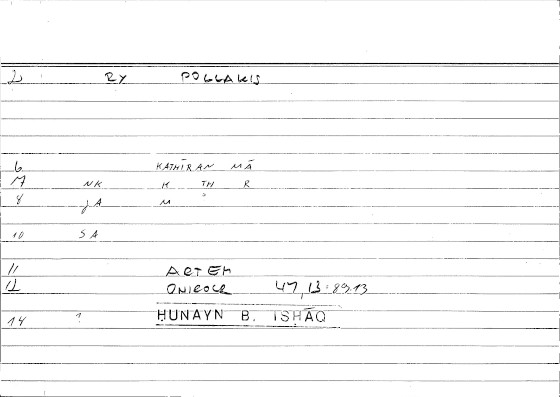 2 RY POLLAKIS
6 KATHĪRAN MĀ
7 NK K TH R
8 JA M
10 SA
11 ARTEM
12 ONIROCR 47,13:89.13
14 ? ḤUNAYN B. ISḤĀQ